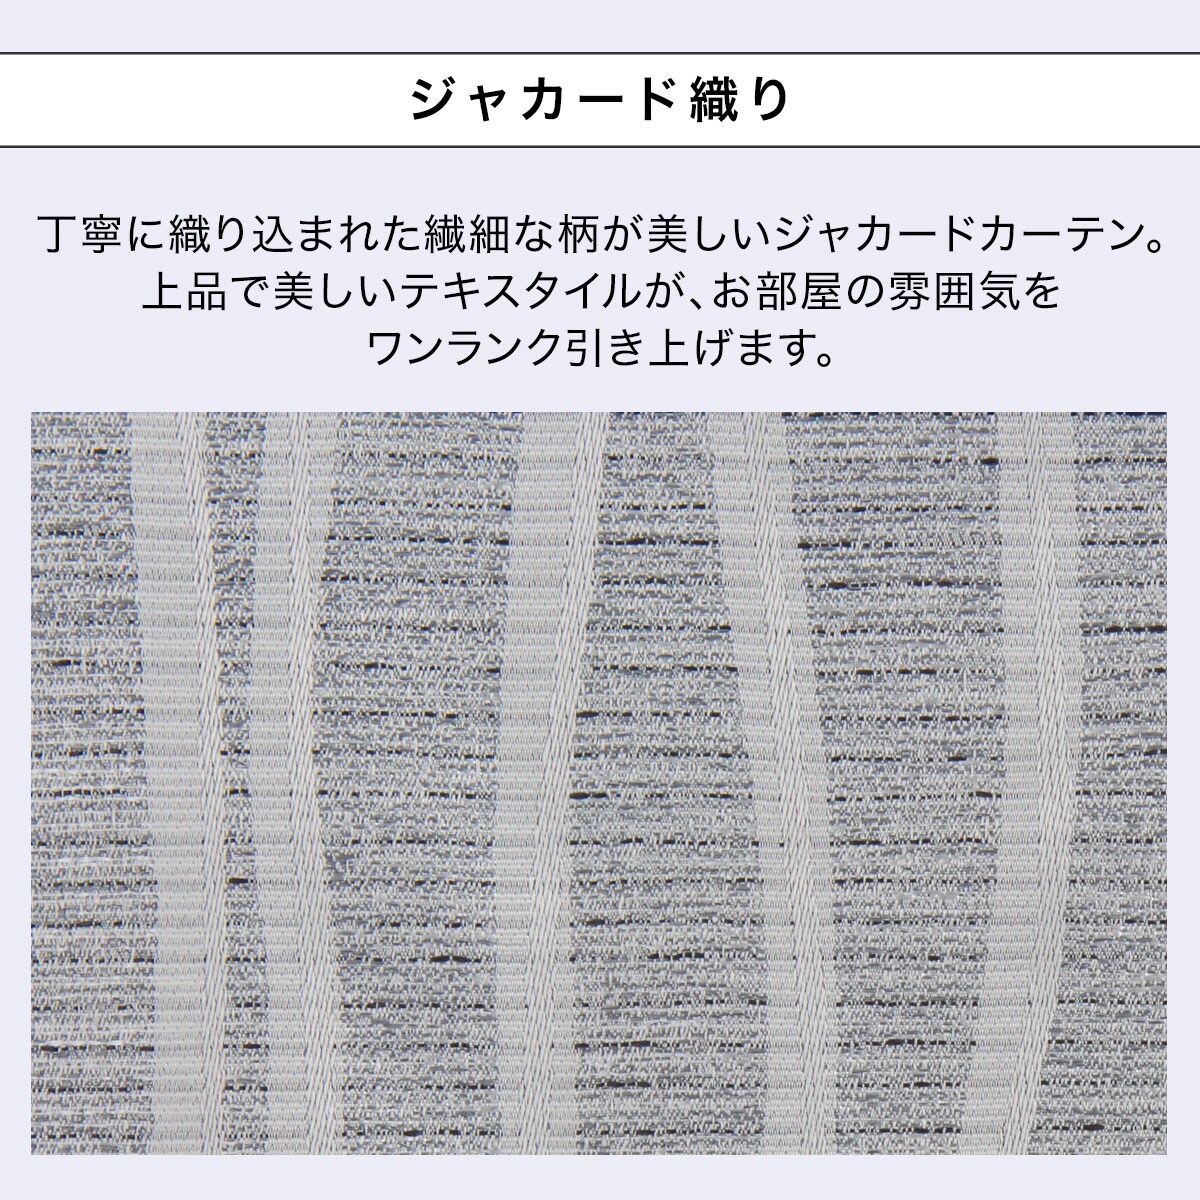 ジャカード織り
丁寧に織り込まれた繊細な柄が美しいジャカードカーテン。
上品で美しいテキスタイルが、お部屋の雰囲気を
ワンランク引き上げます。